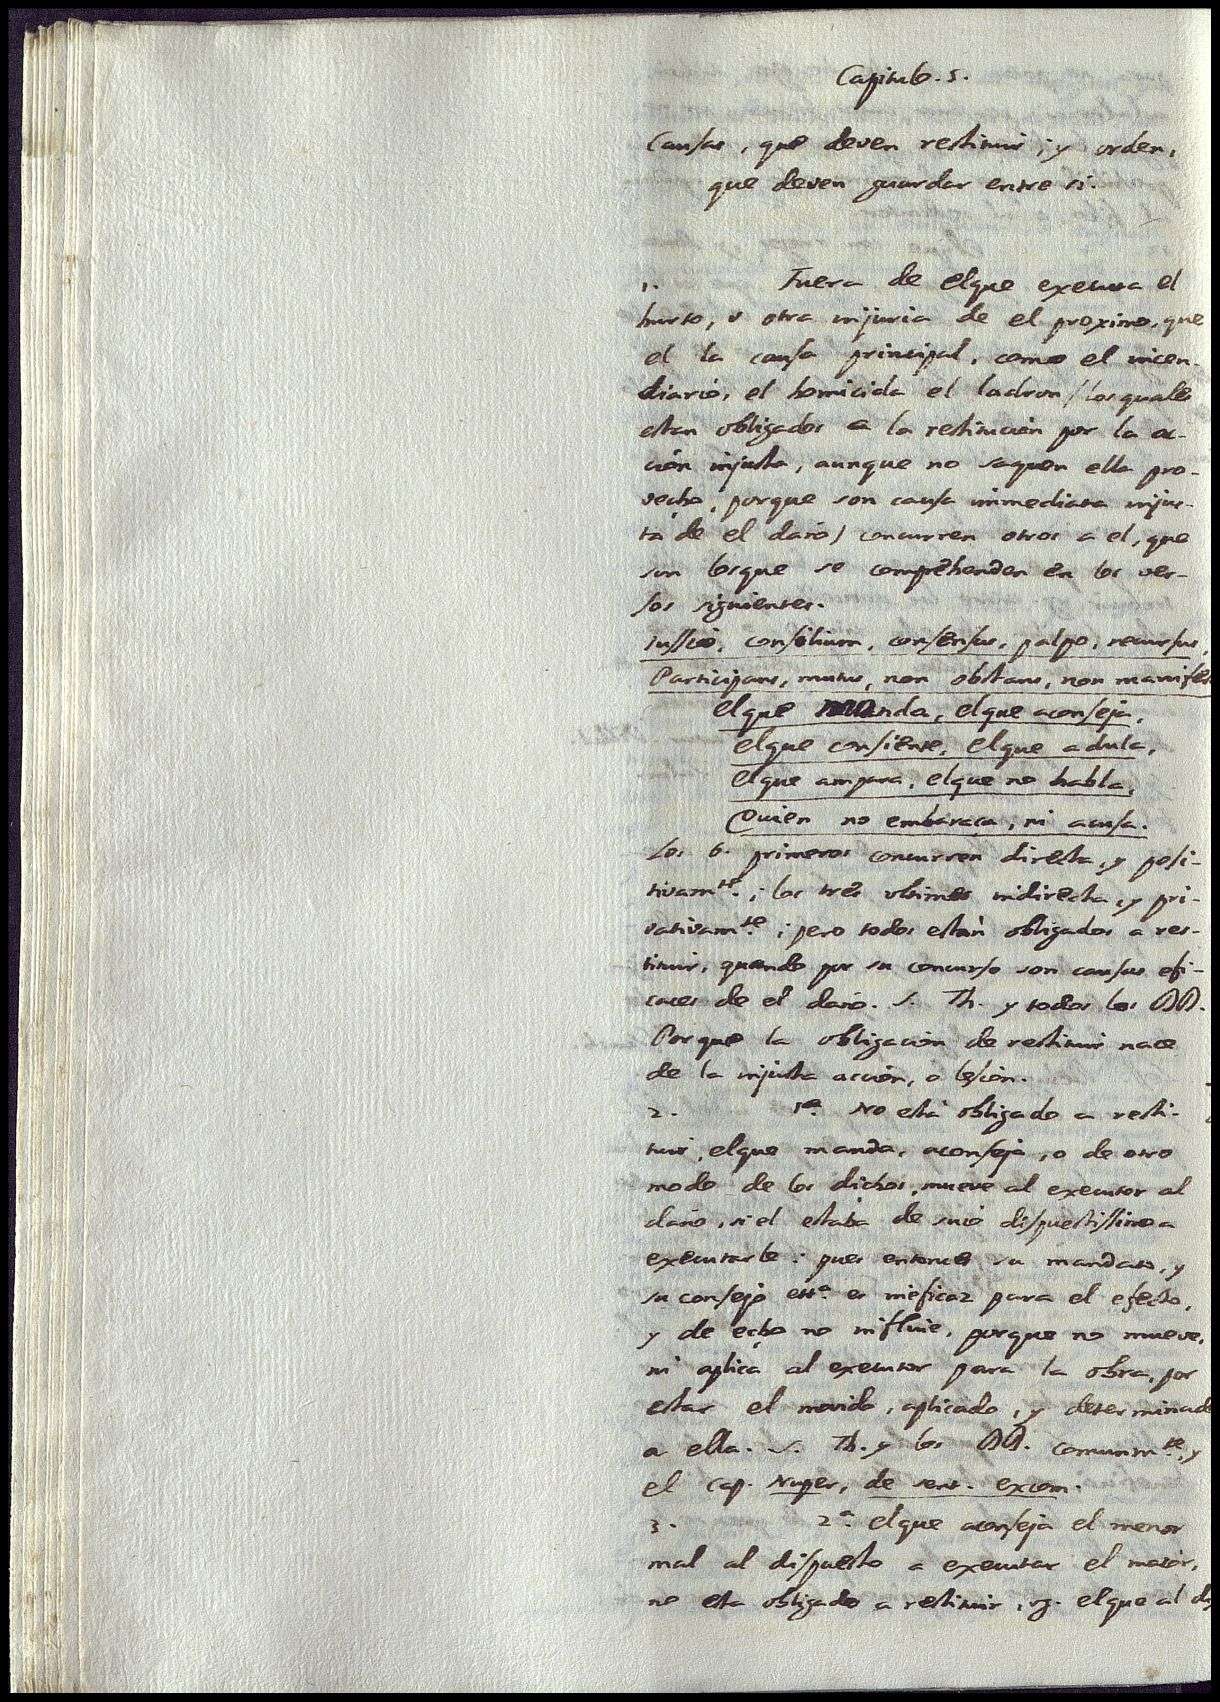 Capitulo. 5.
Causas, que deven restituir; y orden,
que deven guardar entre si.
1. Fuera de elque executa el
hurto, u otra injuria de el proximo, que
es la causa principal, como el incen-
diario, el homicida el ladron (los quales
estan obligados a la restitucion por la ac-
ción injusta, aunque no saquen ella pro-
vecho, porque son causa immediata injus-
ta de el daño) concurren otros a el, que
son losque se comprehenden en los ver-
sos siguientes.
Iussio, consilium, consensus, palpo, recursus,
Participans, mutus, non obstans, non manifes
Elque manda, elque aconseja,
elque consiente, elque adula,
elque ampara, elque no habla,
Quien no embaraca, ni acusa.
Los 6. primeros concurren directa, y posi-
tivamte.; los tres ultimos indirecta, y pri-
vativamte.; pero todos están obligados a res-
tituir, quando por su concurso son causas efi-
caces de el daño. S. Th. y todos los DD.
Porque la obligación de restituir nace
de la injusta acción, o lesión.
2. 1a. No está obligado a resti-
tuir, elque manda, aconseja, o de otro
modo de los dichos, mueve al executor al
daño, si el estaba de suio dispuestissimo a
executarle: pues entonces su mandato, y
su consejo etta. es ineficaz para el efecto,
y de echo no influie, porque no mueve,
ni aplica al executor para la obra, por
estar el movido, aplicado, y determinado
a ella. S. Th. y los DD. comunmte, y
el cap. Nuper, de sent. excom.
3. 2a. elque aconseja el menor
mal al dispuesto a executar el maior,
no esta obligado a restituir, vg. elque al